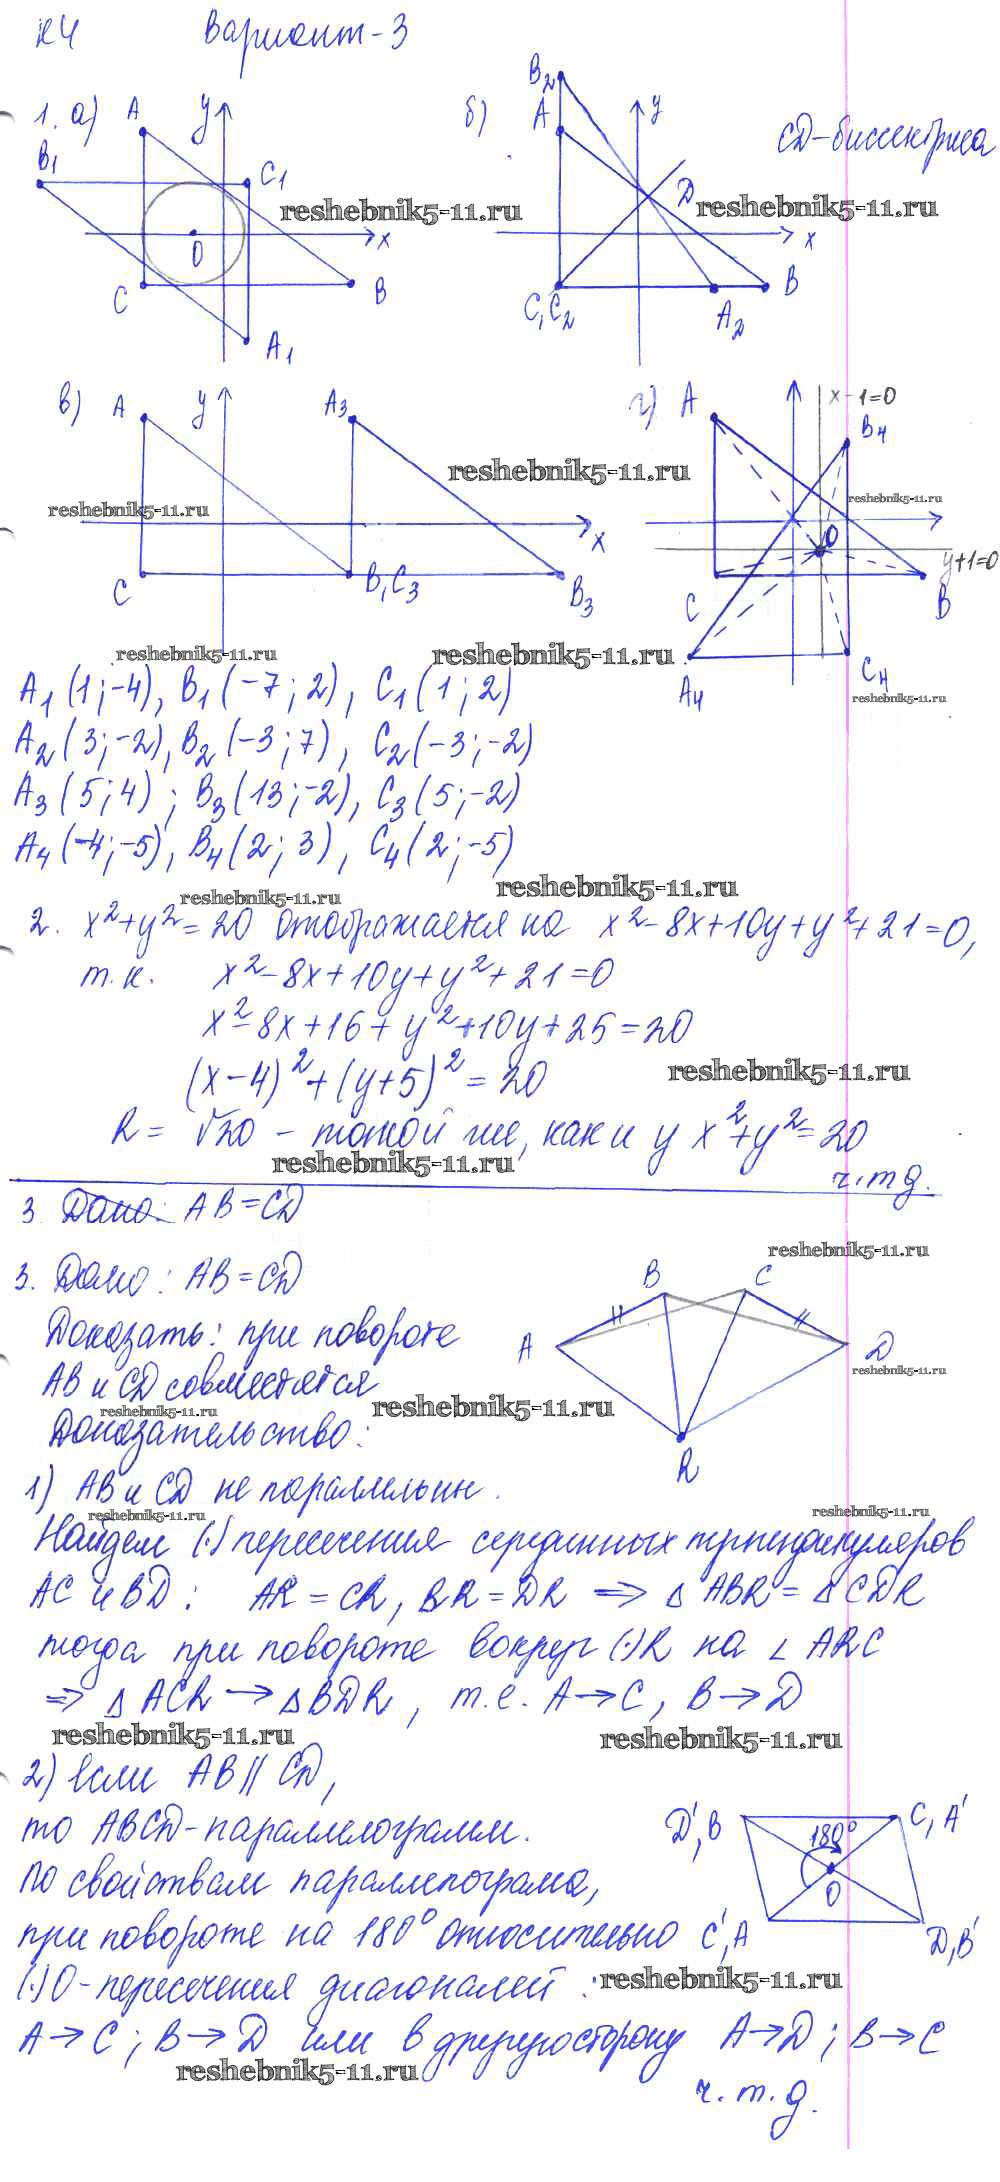 К4 Вариант-3
1. а) A y B1 C1 O x C B A1
б) B2 A y CD-биссектриса D x C,C2 A2 B
reshebnik5-11.ru reshebnik5-11.ru
в) A y A3 x C B,C3 B3
г) A x-1=0 B4 O y+1=0 C B A4 C4
reshebnik5-11.ru
reshebnik5-11.ru reshebnik5-11.ru
reshebnik5-11.ru reshebnik5-11.ru
reshebnik5-11.ru
A1(1;-4), B1(-7;2), C1(1;2)
A2(3;-2), B2(-3;7), C2(-3;-2)
A3(5;4); B3(13;-2), C3(5;-2)
A4(-4;-5), B4(2;3), C4(2;-5)
reshebnik5-11.ru reshebnik5-11.ru
2. x²+y²=20 отображается на x²-8x+10y+y²+21=0,
т.к. x²-8x+10y+y²+21=0
x²-8x+16+y²+10y+25=20
(x-4)²+(y+5)²=20
reshebnik5-11.ru
R=√20 - такой же, как и у x²+y²=20
reshebnik5-11.ru
ч.т.д.
3. Дано: AB=CD
reshebnik5-11.ru
3. Дано: AB=CD
B C A D R
Доказать: при повороте
AB и CD совместятся
reshebnik5-11.ru
reshebnik5-11.ru reshebnik5-11.ru
Доказательство:
1) AB и CD не параллельны.
reshebnik5-11.ru reshebnik5-11.ru
Найдем (·) пересечения серединных перпендикуляров
AC и BD: AR=CR, BR=DR ⇒ △ABR=△CDR
тогда при повороте вокруг (·)R на ∠ARC
⇒ △ACR→△BDR, т.е. A→C, B→D
reshebnik5-11.ru reshebnik5-11.ru
2) Если AB∥CD,
то ABCD-параллелограмм.
D',B C,A' 180° O C',A D,B'
По свойствам параллелограма,
при повороте на 180° относительно
(·)O-пересечения диагоналей:
reshebnik5-11.ru
A→C; B→D или в другую сторону A→D; B→C
reshebnik5-11.ru
ч.т.д.